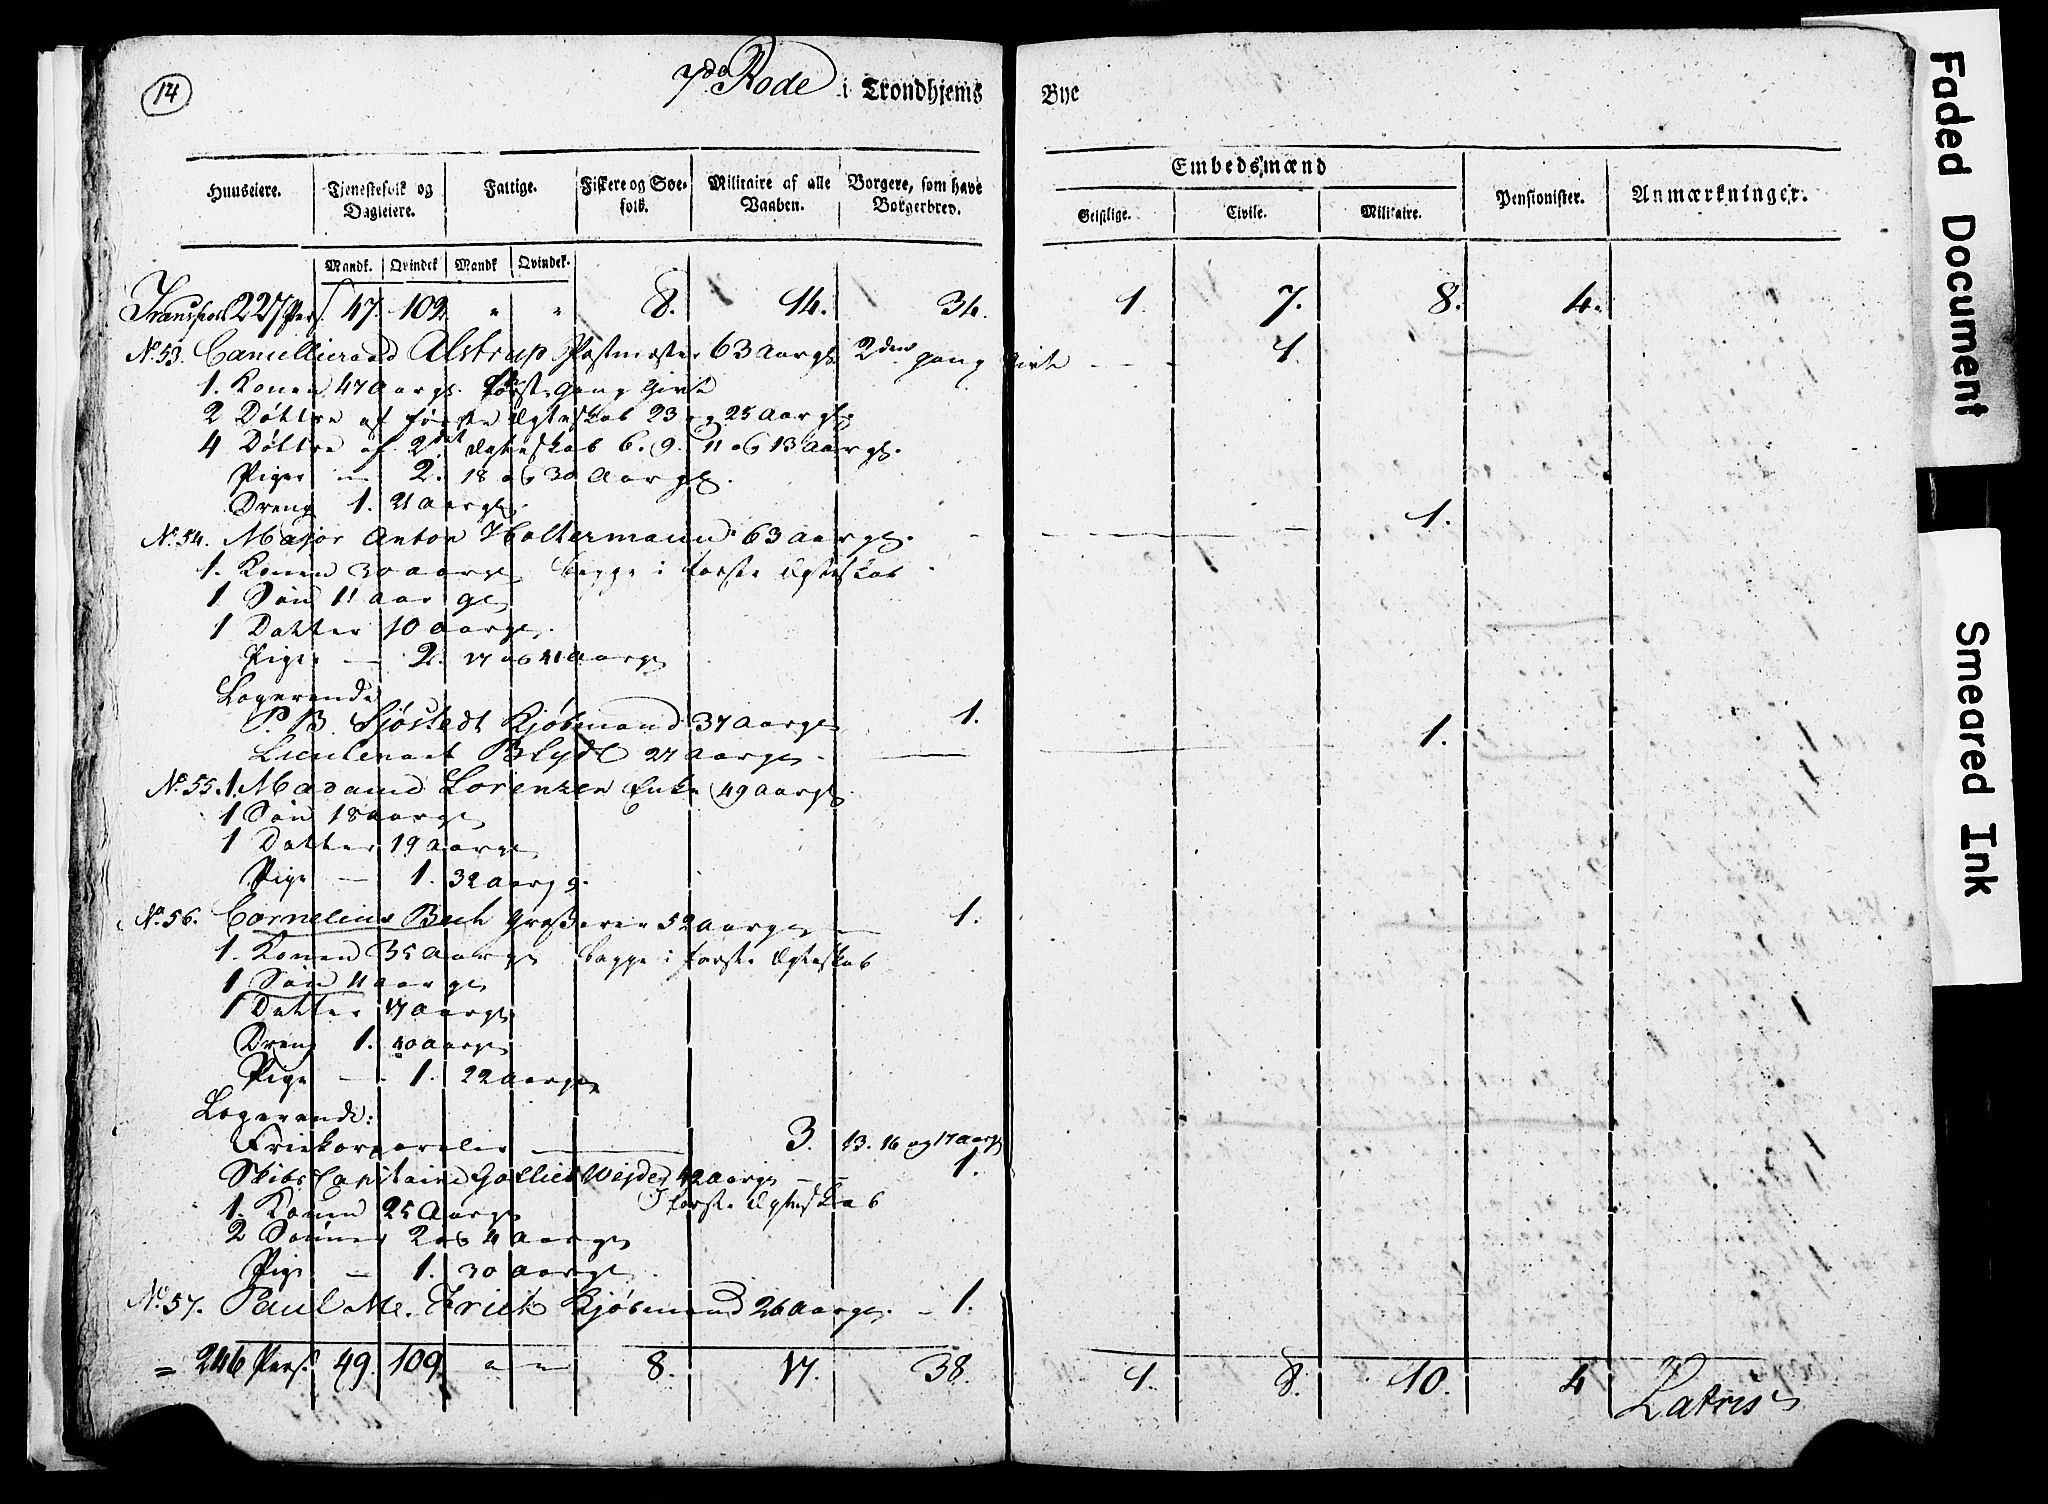 14
7de Rode i Trondhjems Bye
Huuseiere. Tienestefolk og Dagleiere. Fattige. Fiskere og Søefolk. Militaire af alle Vaaben. Borgere, som have Borgerbrev. Embedsmænd Pensionister. Anmærkninger.
Geistlige. Civile. Militaire.
Mandk. Qvindek Mandk Qvindek.
Transport 227 Pers. 47. 102. " " 8. 14. 34. 1. 7. 8. 4.
No. 53. Cancellieraad Alstrup Postmester 63 Aar gl. 2den gang givt - - - 1.
1. Konen 47 Aar gl. første gang givt
2 Døttre af første Ægteskab 23 og 25 Aar gl.
4 Døttre af 2det Ægteskab 6. 9. 11 og 13 Aar gl.
Piger — 2. 18 og 30 Aar gl.
Dreng 1. 21 Aar gl.
No. 54. Major Anton Holtermann 63 aar gl. - 1.
1. Konen 30 aar gl. begge i første Ægteskab
1 Søn 11 aar gl
1 Datter 10 aar gl.
Piger — 2. 17 og 41 Aar gl
Logerende
P. B. Sjøstedt Kjøbmand 37 Aar gl 1.
Lieutenant Blydt 27 Aar gl. 1.
No. 55. 1. Madame Lorenzen Enke 49 Aar gl.
1 Søn 18 aar gl
1 Datter 19 Aar gl
Pige — 1. 32 Aar g.
No. 56. Cornelius Buch Grosserer 52 Aar gl — 1.
1. Konen 35 Aar gl begge i første Ægteskab
1 Søn 11 aar gl
1 Datter 17 Aar gl
Dreng 1. 20 Aar gl
Pige — 1. 22 Aar gl
Logerende:
Friekorporaler 3. 13. 16 og 17 Aar gl
Skibs Capitaine Gottlieb Weyde 42 Aar gl — 1.
1. Konen 25 Aar gl I første Ægteskab
2 Sønner 2 og 4 Aar gl
Pige — 1. 30 Aar gl.
No. 57. Paul M. Erich Kjøbmand 26 Aar gl. — 1.
= 246 Pers. 49. 109. " " 8. 17. 38. 1. 8. 10. 4 Latris
Faded Document
Smeared Ink